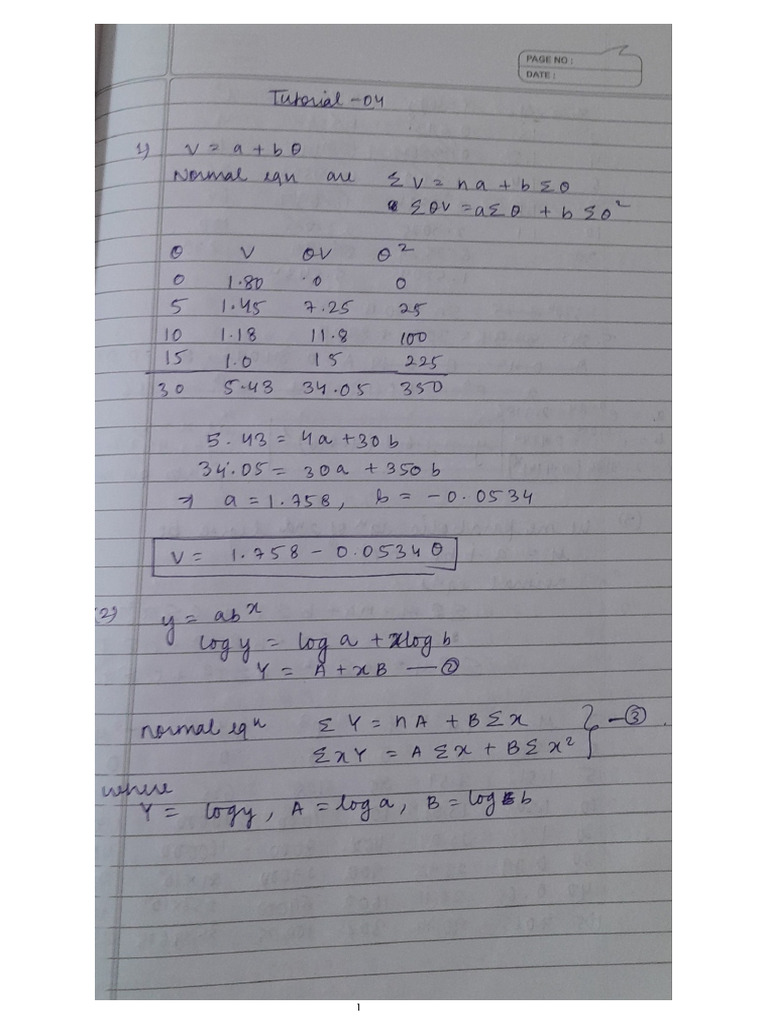 PAGE NO :
DATE :
Tutorial - 04
1) V = a + b θ
Normal eqn are Σ V = na + b Σ θ
Σ θV = a Σ θ + b Σ θ²
θ V θV θ²
0 1.80 0 0
5 1.45 7.25 25
10 1.18 11.8 100
15 1.0 15 225
30 5.43 34.05 350
5.43 = 4a + 30 b
34.05 = 30a + 350 b
⇒ a = 1.758, b = -0.0534
V = 1.758 - 0.0534 θ
(2) y = abˣ
log y = log a + x log b
Y = A + x B — ②
Normal eqⁿ Σ Y = n A + B Σ x } — ③
Σ x Y = A Σ x + B Σ x²
where
Y = log y, A = log a, B = log b
1